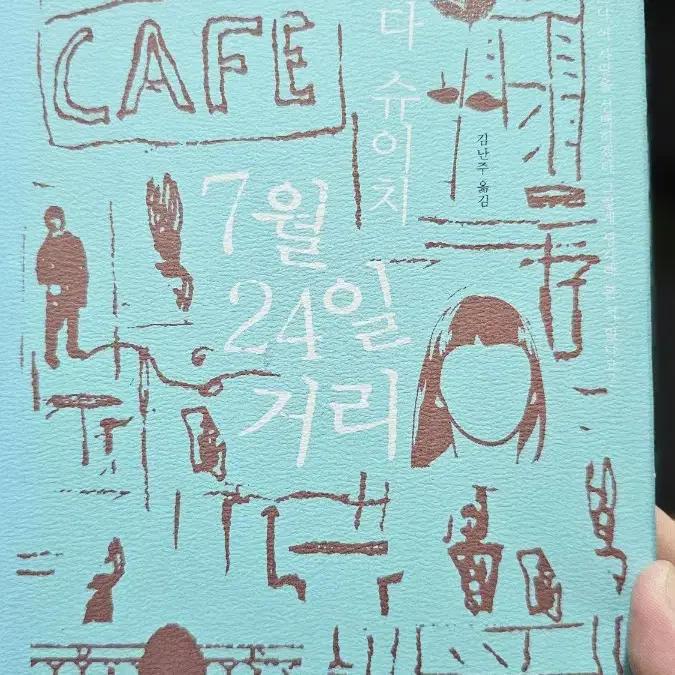 CAFE
다 슈이치
김난주 옮김
7월
24일
거리